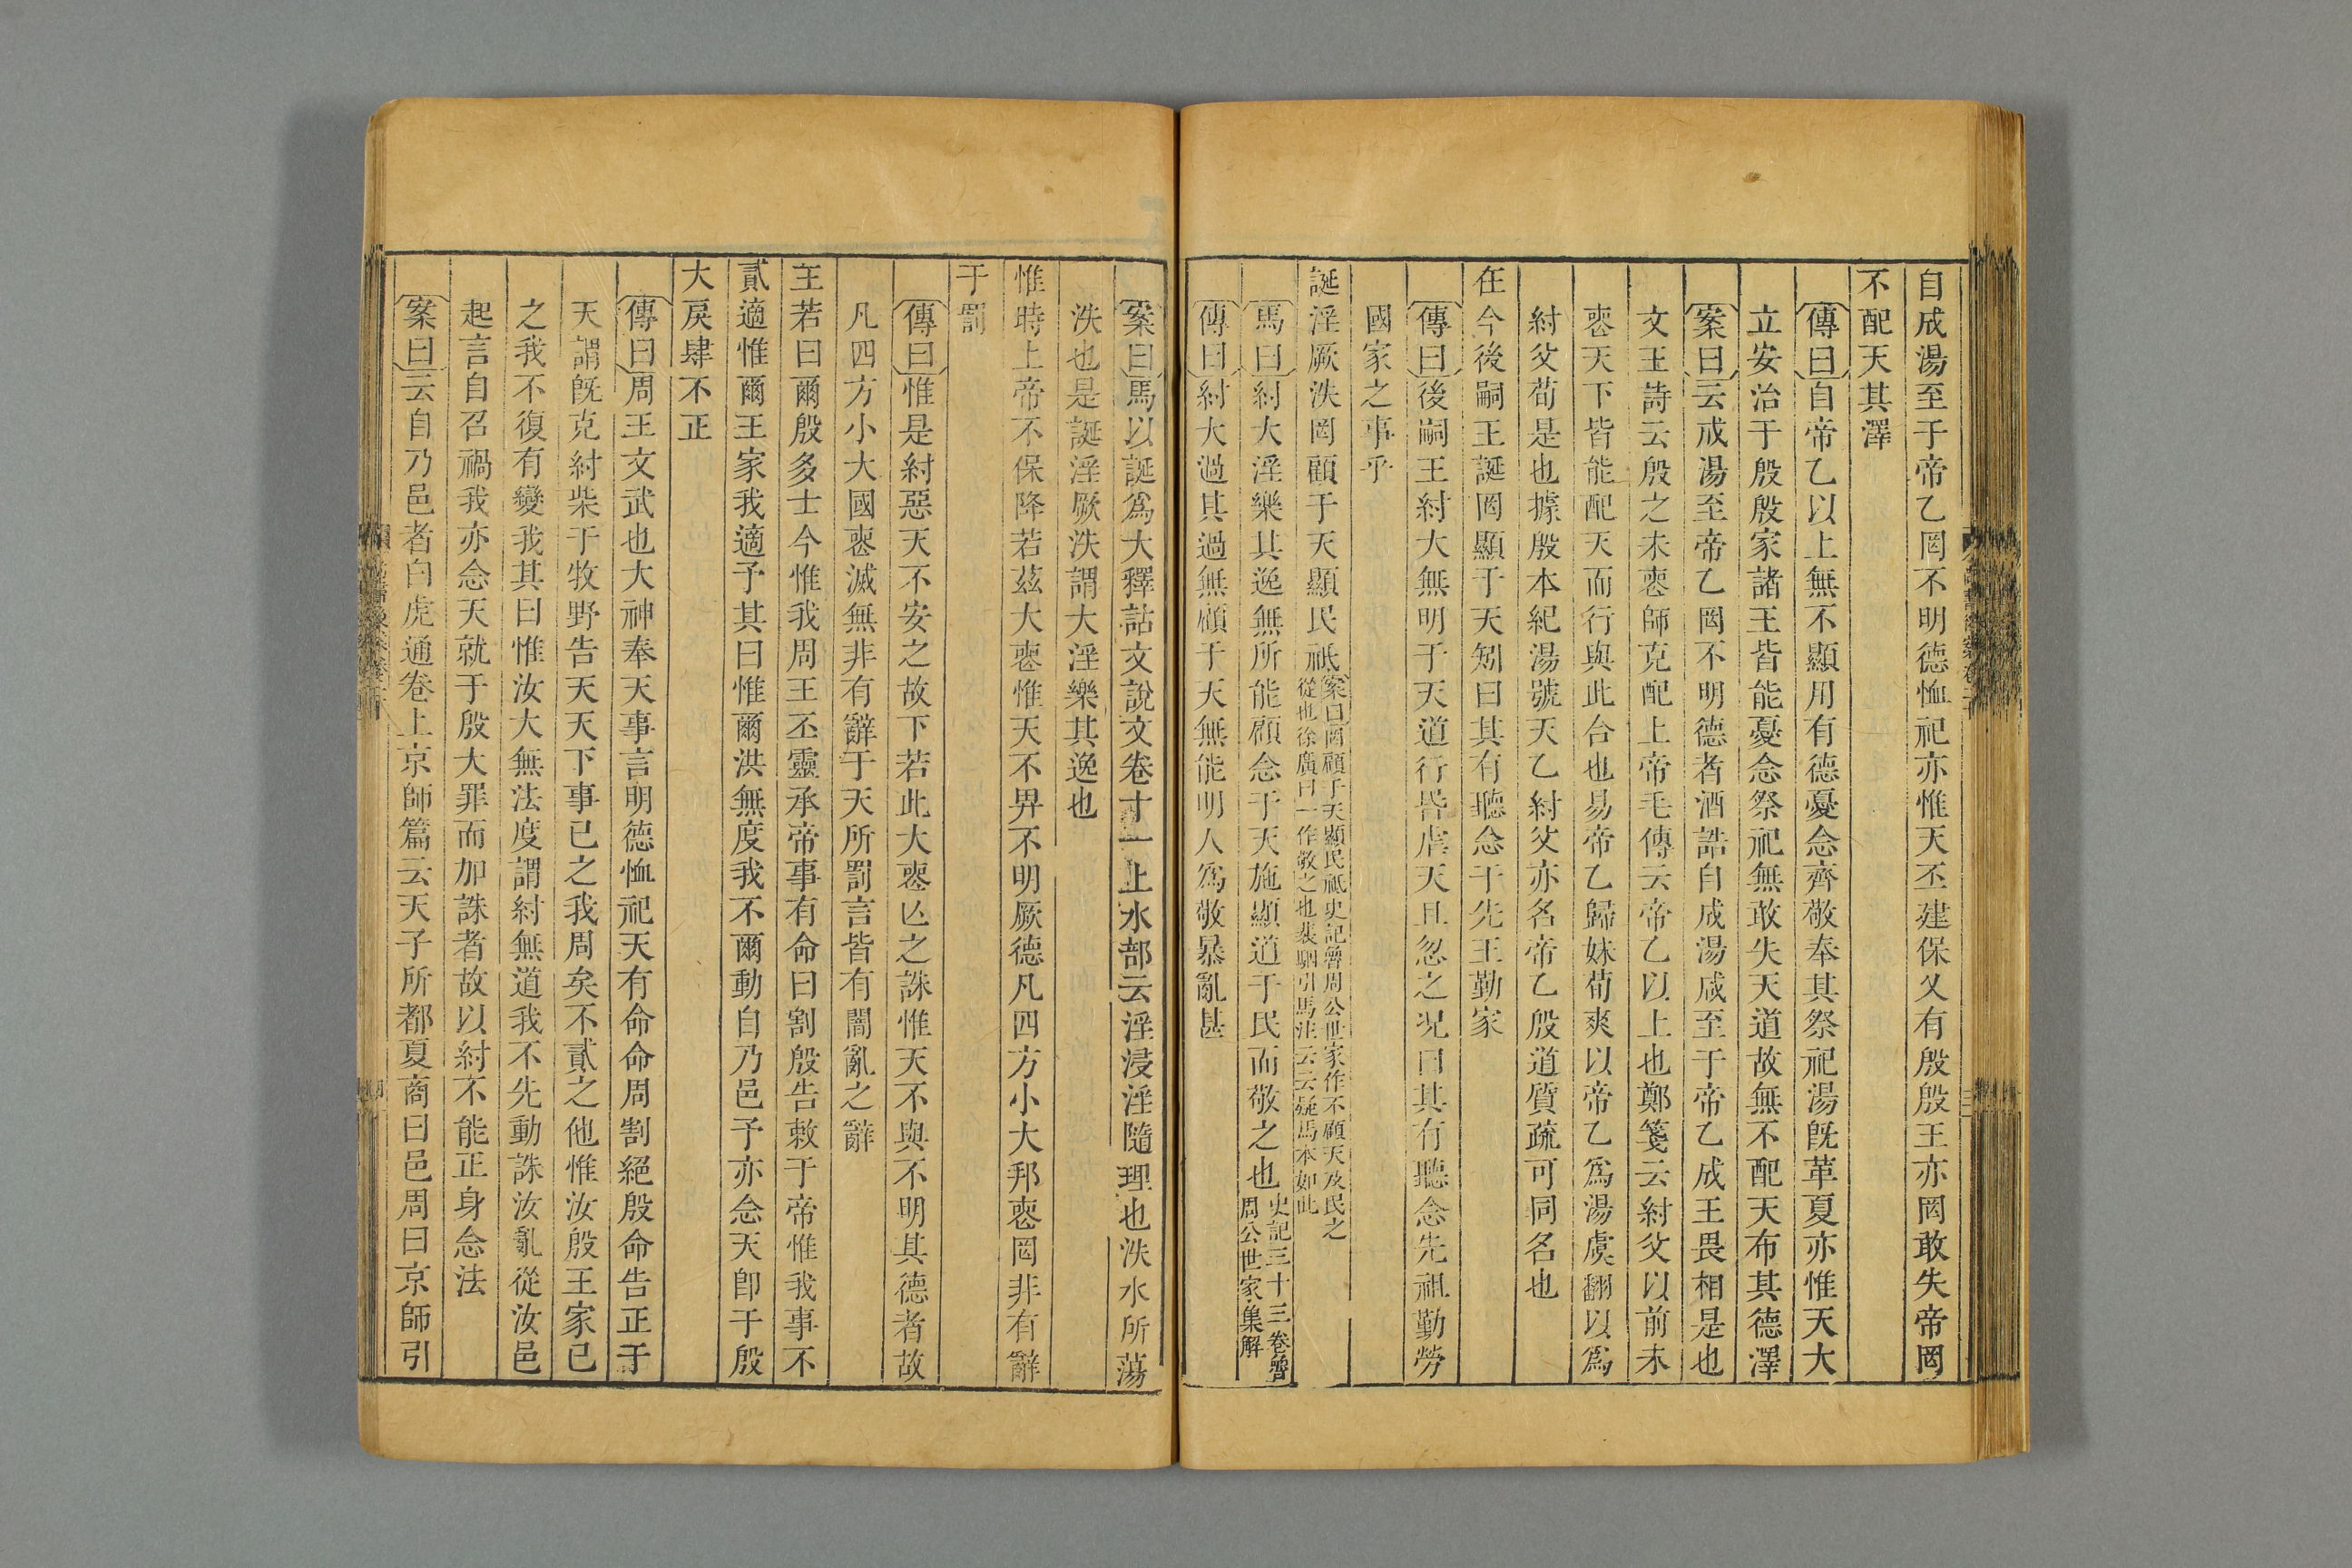 自成湯至于帝乙罔不明德恤祀亦惟天丕建保乂有殷殷王亦罔敢失帝罔
不配天其澤
傳曰自帝乙以上無不顯用有德憂念齊敬奉其祭祀湯旣革夏亦惟天大
立安治于殷殷家諸王皆能憂念祭祀無敢失天道故無不配天布其德澤
案曰云成湯至帝乙罔不明德者酒誥自成湯咸至于帝乙成王畏相是也
文王詩云殷之未喪師克配上帝毛傳云帝乙以上也鄭箋云紂父以前未
喪天下皆能配天而行與此合也易帝乙歸妹荀爽以帝乙爲湯虞翻以爲
紂父荀是也據殷本紀湯號天乙紂父亦名帝乙殷道質疏可同名也
在今後嗣王誕罔顯于天矧曰其有聽念于先王勤家
傳曰後嗣王紂大無明于天道行昏虐天且忽之況曰其有聽念先祖勤勞
國家之事乎
誕淫厥泆罔顧于天顯民祇案曰罔顧于天顯民祇史記魯周公世家作不顧天及民之
從也徐廣曰一作敬之也裴駰引馬注云云疑馬本如此
馬曰紂大淫樂其逸無所能顧念于天施顯道于民而敬之也史記三十三卷魯
周公世家集解
傳曰紂大過其過無顧于天無能明人爲敬暴亂甚
案曰馬以誕爲大釋詁文說文卷十一上水部云淫浸淫隨理也泆水所蕩
泆也是誕淫厥泆謂大淫樂其逸也
惟時上帝不保降若茲大喪惟天不畀不明厥德凡四方小大邦喪罔非有辭
于罰
傳曰惟是紂惡天不安之故下若此大喪亾之誅惟天不與不明其德者故
凡四方小大國喪滅無非有辭于天所罰言皆有闇亂之辭
王若曰爾殷多士今惟我周王丕靈承帝事有命曰割殷告敕于帝惟我事不
貳適惟爾王家我適予其曰惟爾洪無度我不爾動自乃邑予亦念天卽于殷
大戾肆不正
傳曰周王文武也大神奉天事言明德恤祀天有命命周割絕殷命告正于
天謂旣克紂柴于牧野告天天下事已之我周矣不貳之他惟汝殷王家已
之我不復有變我其曰惟汝大無法度謂紂無道我不先動誅汝亂從汝邑
起言自召禍我亦念天就于殷大罪而加誅者故以紂不能正身念法
案曰云自乃邑者白虎通卷上京師篇云天子所都夏商曰邑周曰京師引